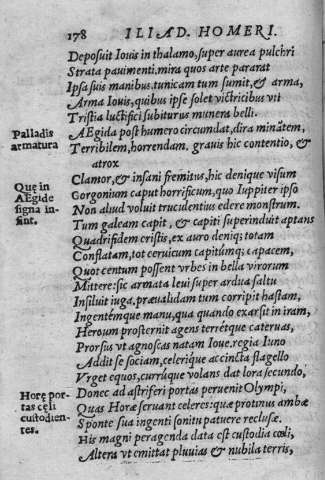 178 ILIAD. HOMERI.
Deposuit Iouis in thalamo, super aurea pulchri
Strata pauimenti, mira quos arte pararat
Ipsa suis manibus. tunicam tum sumit, & arma,
Arma Iouis, quibus ipse solet victricibus vti
Tristia luctifici subiturus munera belli.
Palladis
armatura
AEgida post humero circumdat, dira minãtem,
Terribilem, horrendam, grauis hic contentio, &
atrox
Clamor, & insani fremitus, hic denique visum
Quę in
AEgide
signa in-
sint.
Gorgonium caput horrificum, quo Iuppiter ipso
Non aliud voluit trucidentius edere monstrum.
Tum galeam capit, & capiti superinduit aptans
Quadrifidem cristis, ex auro deniq; totam
Conflatam, tot ceruicum capitúmq; capacem,
Quot centum possent vrbes in bella virorum
Mittere: sic armata leui super ardua saltu
Insiluit iuga. præualidam tum corripit hastam,
Ingentémque manu, qua quando exarsit in iram,
Heroum prosternit agens terrétque cateruas,
Prorsus vt agnoscas natam Ioue. regia Iuno
Addit se sociam, celerique accincta flagello
Vrget equos, currúque volans dat lora secundo,
Horę por-
tas cęli
custodien-
tes.
Donec ad astriferi portas peruenit Olympi,
Quas Horæ seruant celeres: quæ protinus ambæ
Sponte sua ingenti sonitu patuere reclusæ.
His magni peragenda data est custodia cœli,
Altera vt emittat pluuias & nubila terris,